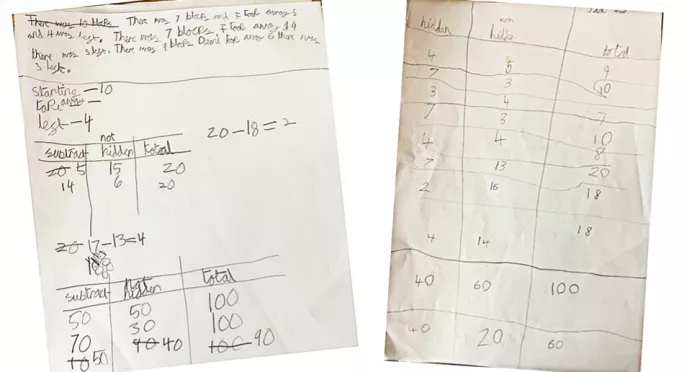 There was 10 blocks There was 7 blocks and I took away 5
and 4 was left. There was 7 blocks. I took away 4
there was 3 left. There was 9 blocks David took away 6 there was
3 left.
starting - 10
take away -
left - 4
20 - 18 = 2
subtract not hidden total
20 5 15 20
14 6 20
20 17 - 13 = 4
subtract not hidden total
50 50 100
70 30 100
10 50 90 40 100 90
hidden not hidden total
4 5 9
7 3 10
3 4 7
7 3 10
4 4 8
7 13 20
2 16 18
4 14 18
40 60 100
40 20 60